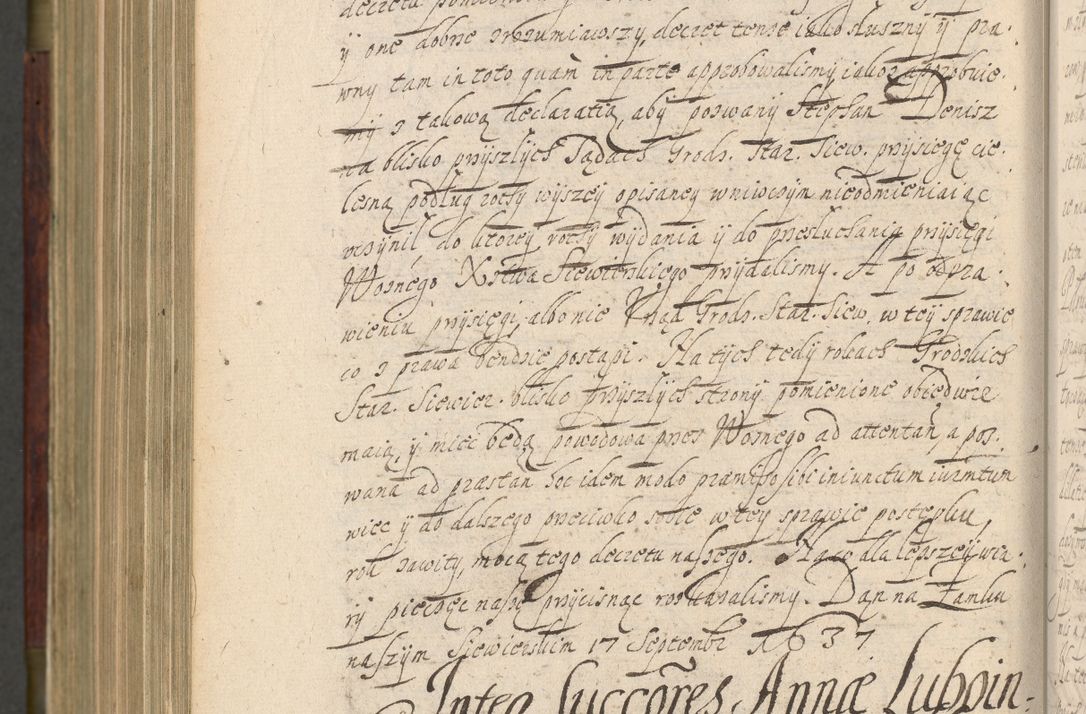 ÿ one dobrze zrozumiawszy, decret tenze iako słuszny ÿ pra:
wny tam in toto quam in parte approbowalismÿ iakoz approbuie:
mÿ z takową declaratią, abÿ pozwanÿ Stephan Denisz
na blisko przÿszłÿch Sądach Grodz. Star. Siew. przÿsięgę cie:
lesną podług rothÿ wÿszeÿ opisaneÿ wniwczÿm nieodmieniaiąc
vczÿnił do ktoreÿ rothÿ wÿdania ÿ do przesłuchania przÿsięgi
Woznégo Xstwa Siewierskiego przÿdalismÿ. A po odpra:
wieniu przÿsięgi, albo nie Vrząd Grodz. Star. Siew. w teÿ sprawie
co z prawa bendzie postąpi. Na tÿch tedÿ rokach Grodzkich
Star. Siewier. blisko przÿszłÿch stronÿ pomienione obiedwie
maią, ÿ miec będą powodowa przes Woznego ad attentan, a poz:
wana ad præstan hoc idem modo præmisso sibi iniunctum iurmtum
wiec ÿ do dalszego przeciwko sobie w teÿ sprawie postępku,
rok zawitÿ, mocą tego decretu naszego. Na co dla lepszeÿ wia:
rÿ pieczęc naszę przÿcisnąc roskazalismÿ. Dan na Zamku
naszÿm Siewierskim 17 Septembr 1637
Inter Succōres Annæ Luboin: